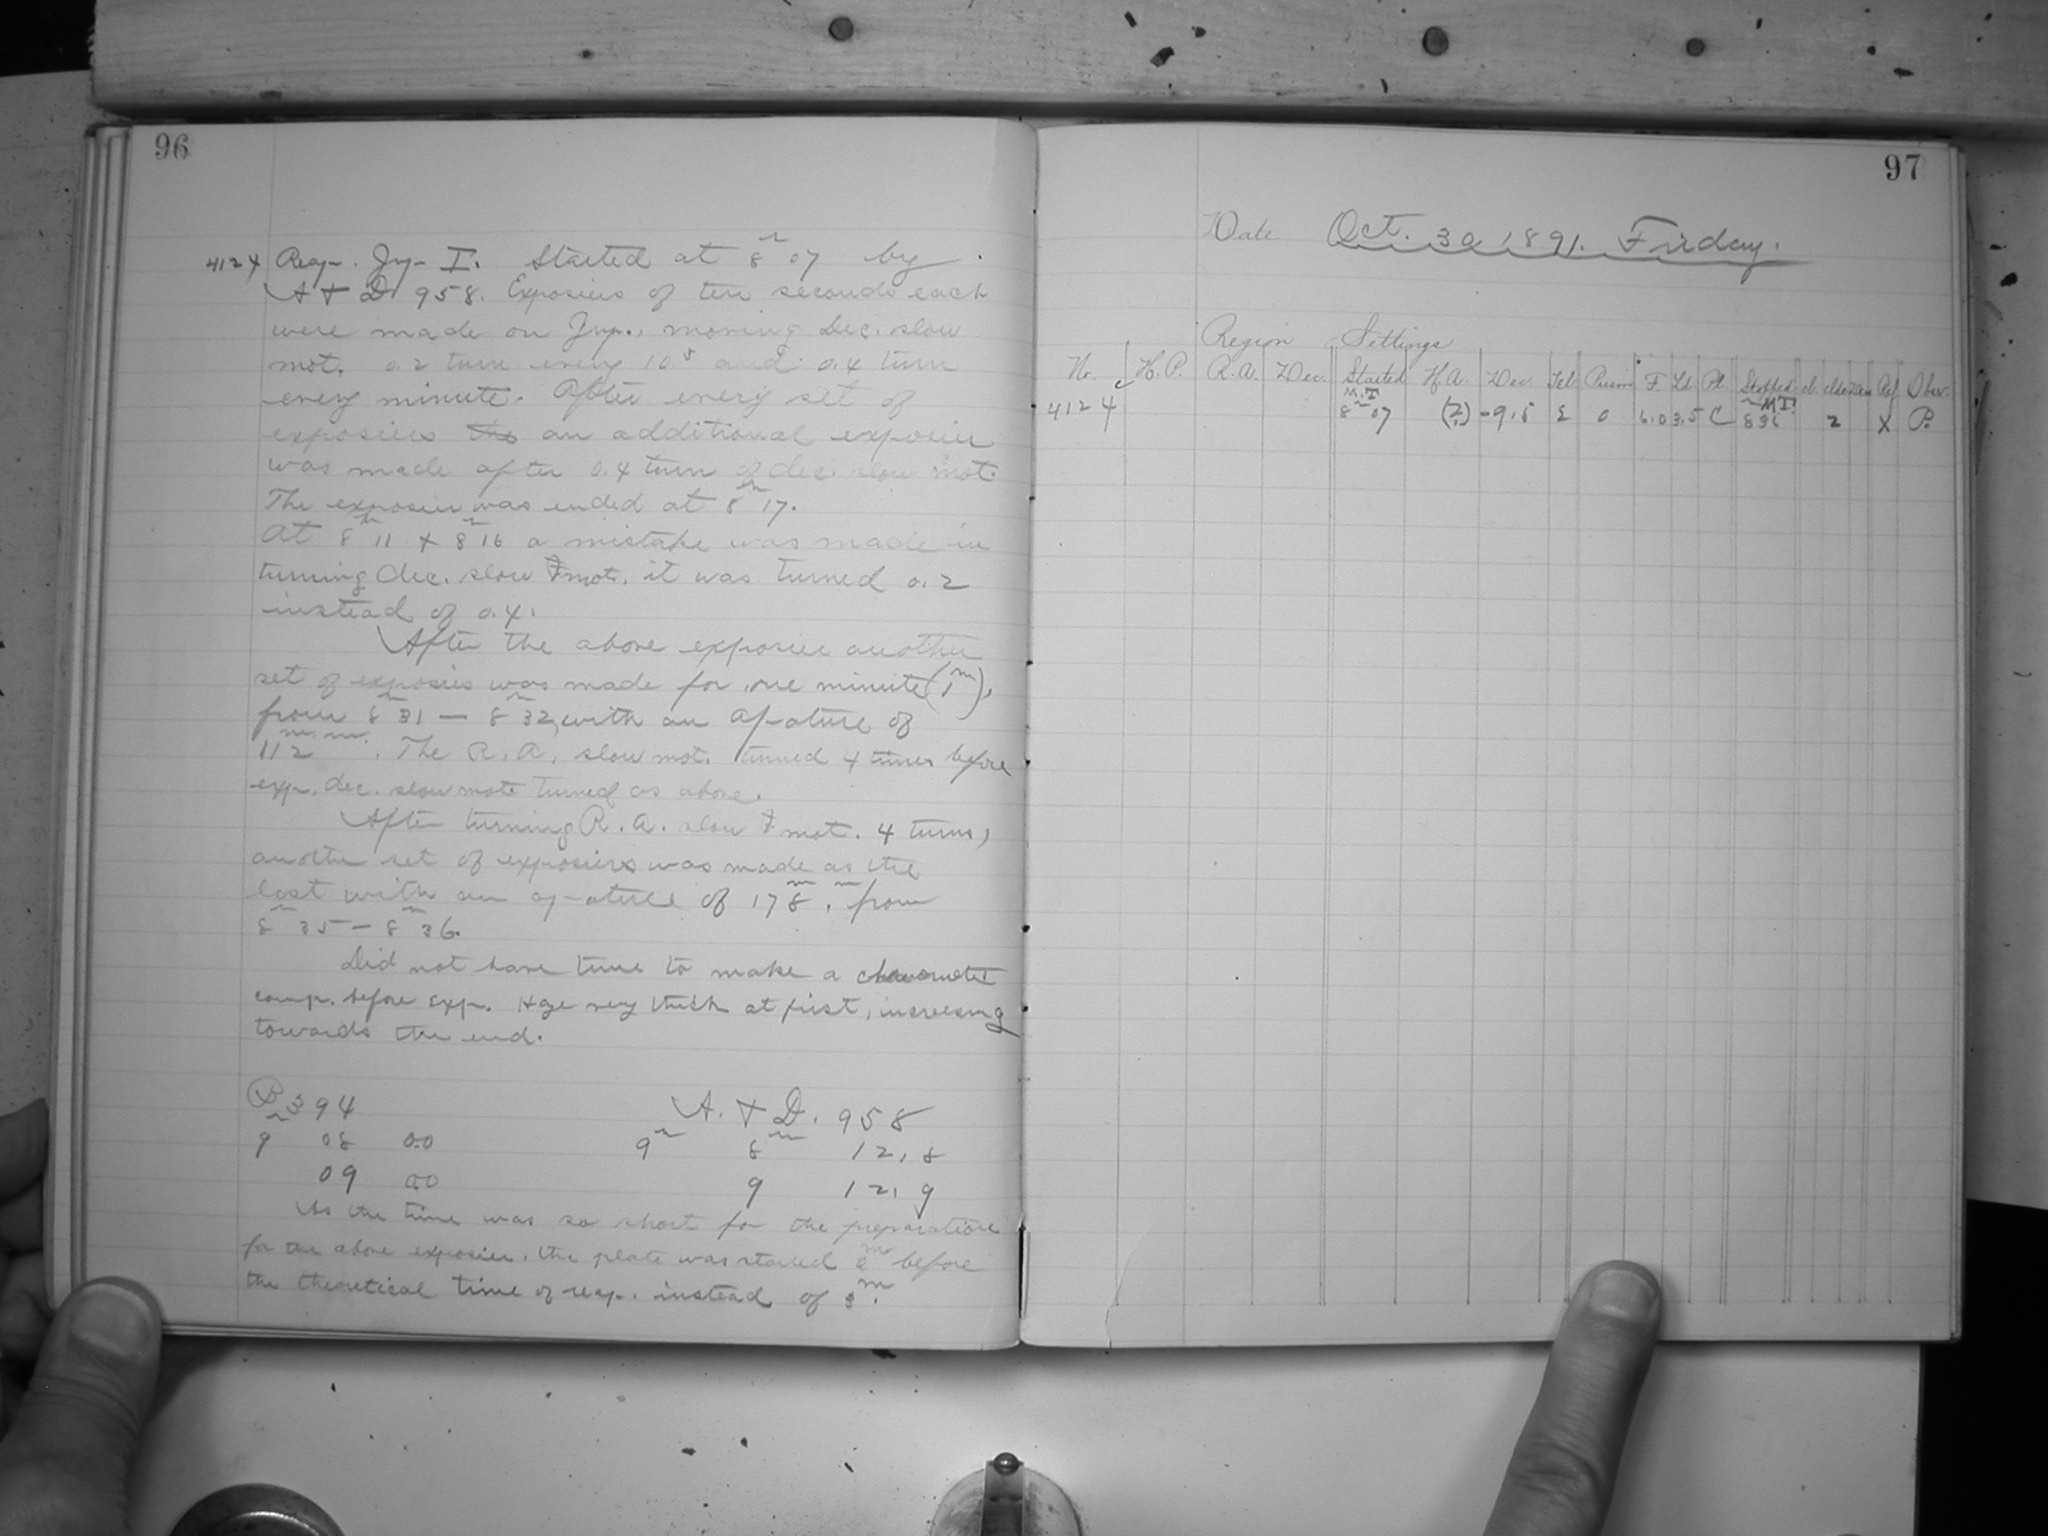 96
4124 Reap. Jup. I. Started at 8h 07 by
A & D. 958. Exposiers of ten seconds each
were made on Jup., moving Dec. slow
mot. 0.2 turn every 10s and 0.4 turn
every minute. After every set of
exposiers the an additional exposier
was made after 0.4 turn of dec. slow mot.
The exposier was ended at 8h 17.
At 8h 11 & 8h 16 a mistake was made in
turning dec. slow mot. it was turned 0.2
instead of 0.4.
After the above exposier another
set of exposies was made for one minute (1m),
from 8h 31 — 8h 32, with an apature of
112 mm. The R.A. slow mot. turned 4 times before
exp. dec. slow mot. turned as above.
After turning R.A. slow mot. 4 turns,
another set of exposiers was made as the
last with an apature of 178 mm. from
8h 35 — 8h 36.
Did not have time to make a chronometer
comp. before exp. Haze very thick at first, increesing
towards the end.
394 A. & D. 958
9h 08 00 9h 8m 12.8
09 00 9 12.9
As the time was so short for the preparations
for the above exposier, the plate was started 2m before
the theoretical time of reap. instead of 3m.
97
Date Oct. 30 1891. Friday.
Region Settings
Nr. H.P. R.A. Dec. Started H.A. Dec. Tel. Prism F. Ld. Pl. Stopped cl. Ref. Obsr.
M.T. M.T.
4124 8h 07 (2) -9.5 E 0 6.0 3.5 C 8h 36 2 X P.